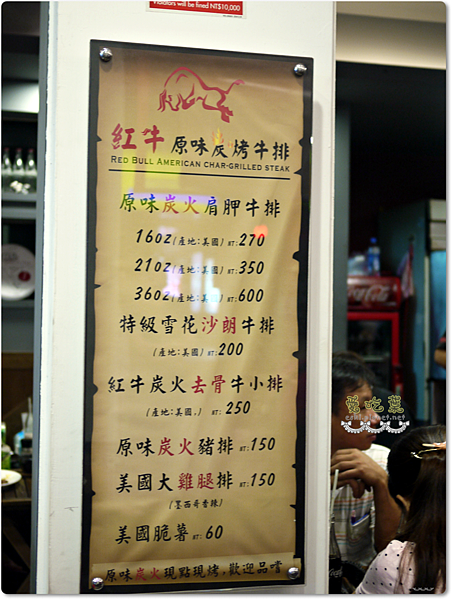 Violators will be fined NT$10,000
紅牛 原味炭烤牛排
RED BULL AMERICAN CHAR-GRILLED STEAK
原味炭火肩胛牛排
16OZ(產地:美國) NT:270
21OZ(產地:美國) NT:350
36OZ(產地:美國) NT:600
特級雪花沙朗牛排
(產地:美國) NT:200
紅牛炭火去骨牛小排
(產地:美國.) NT: 250
原味炭火豬排 NT:150
美國大雞腿排 NT:150
(墨西哥香辣)
美國脆薯 NT:60
原味炭火現點現烤,歡迎品嚐
愛吃鬼